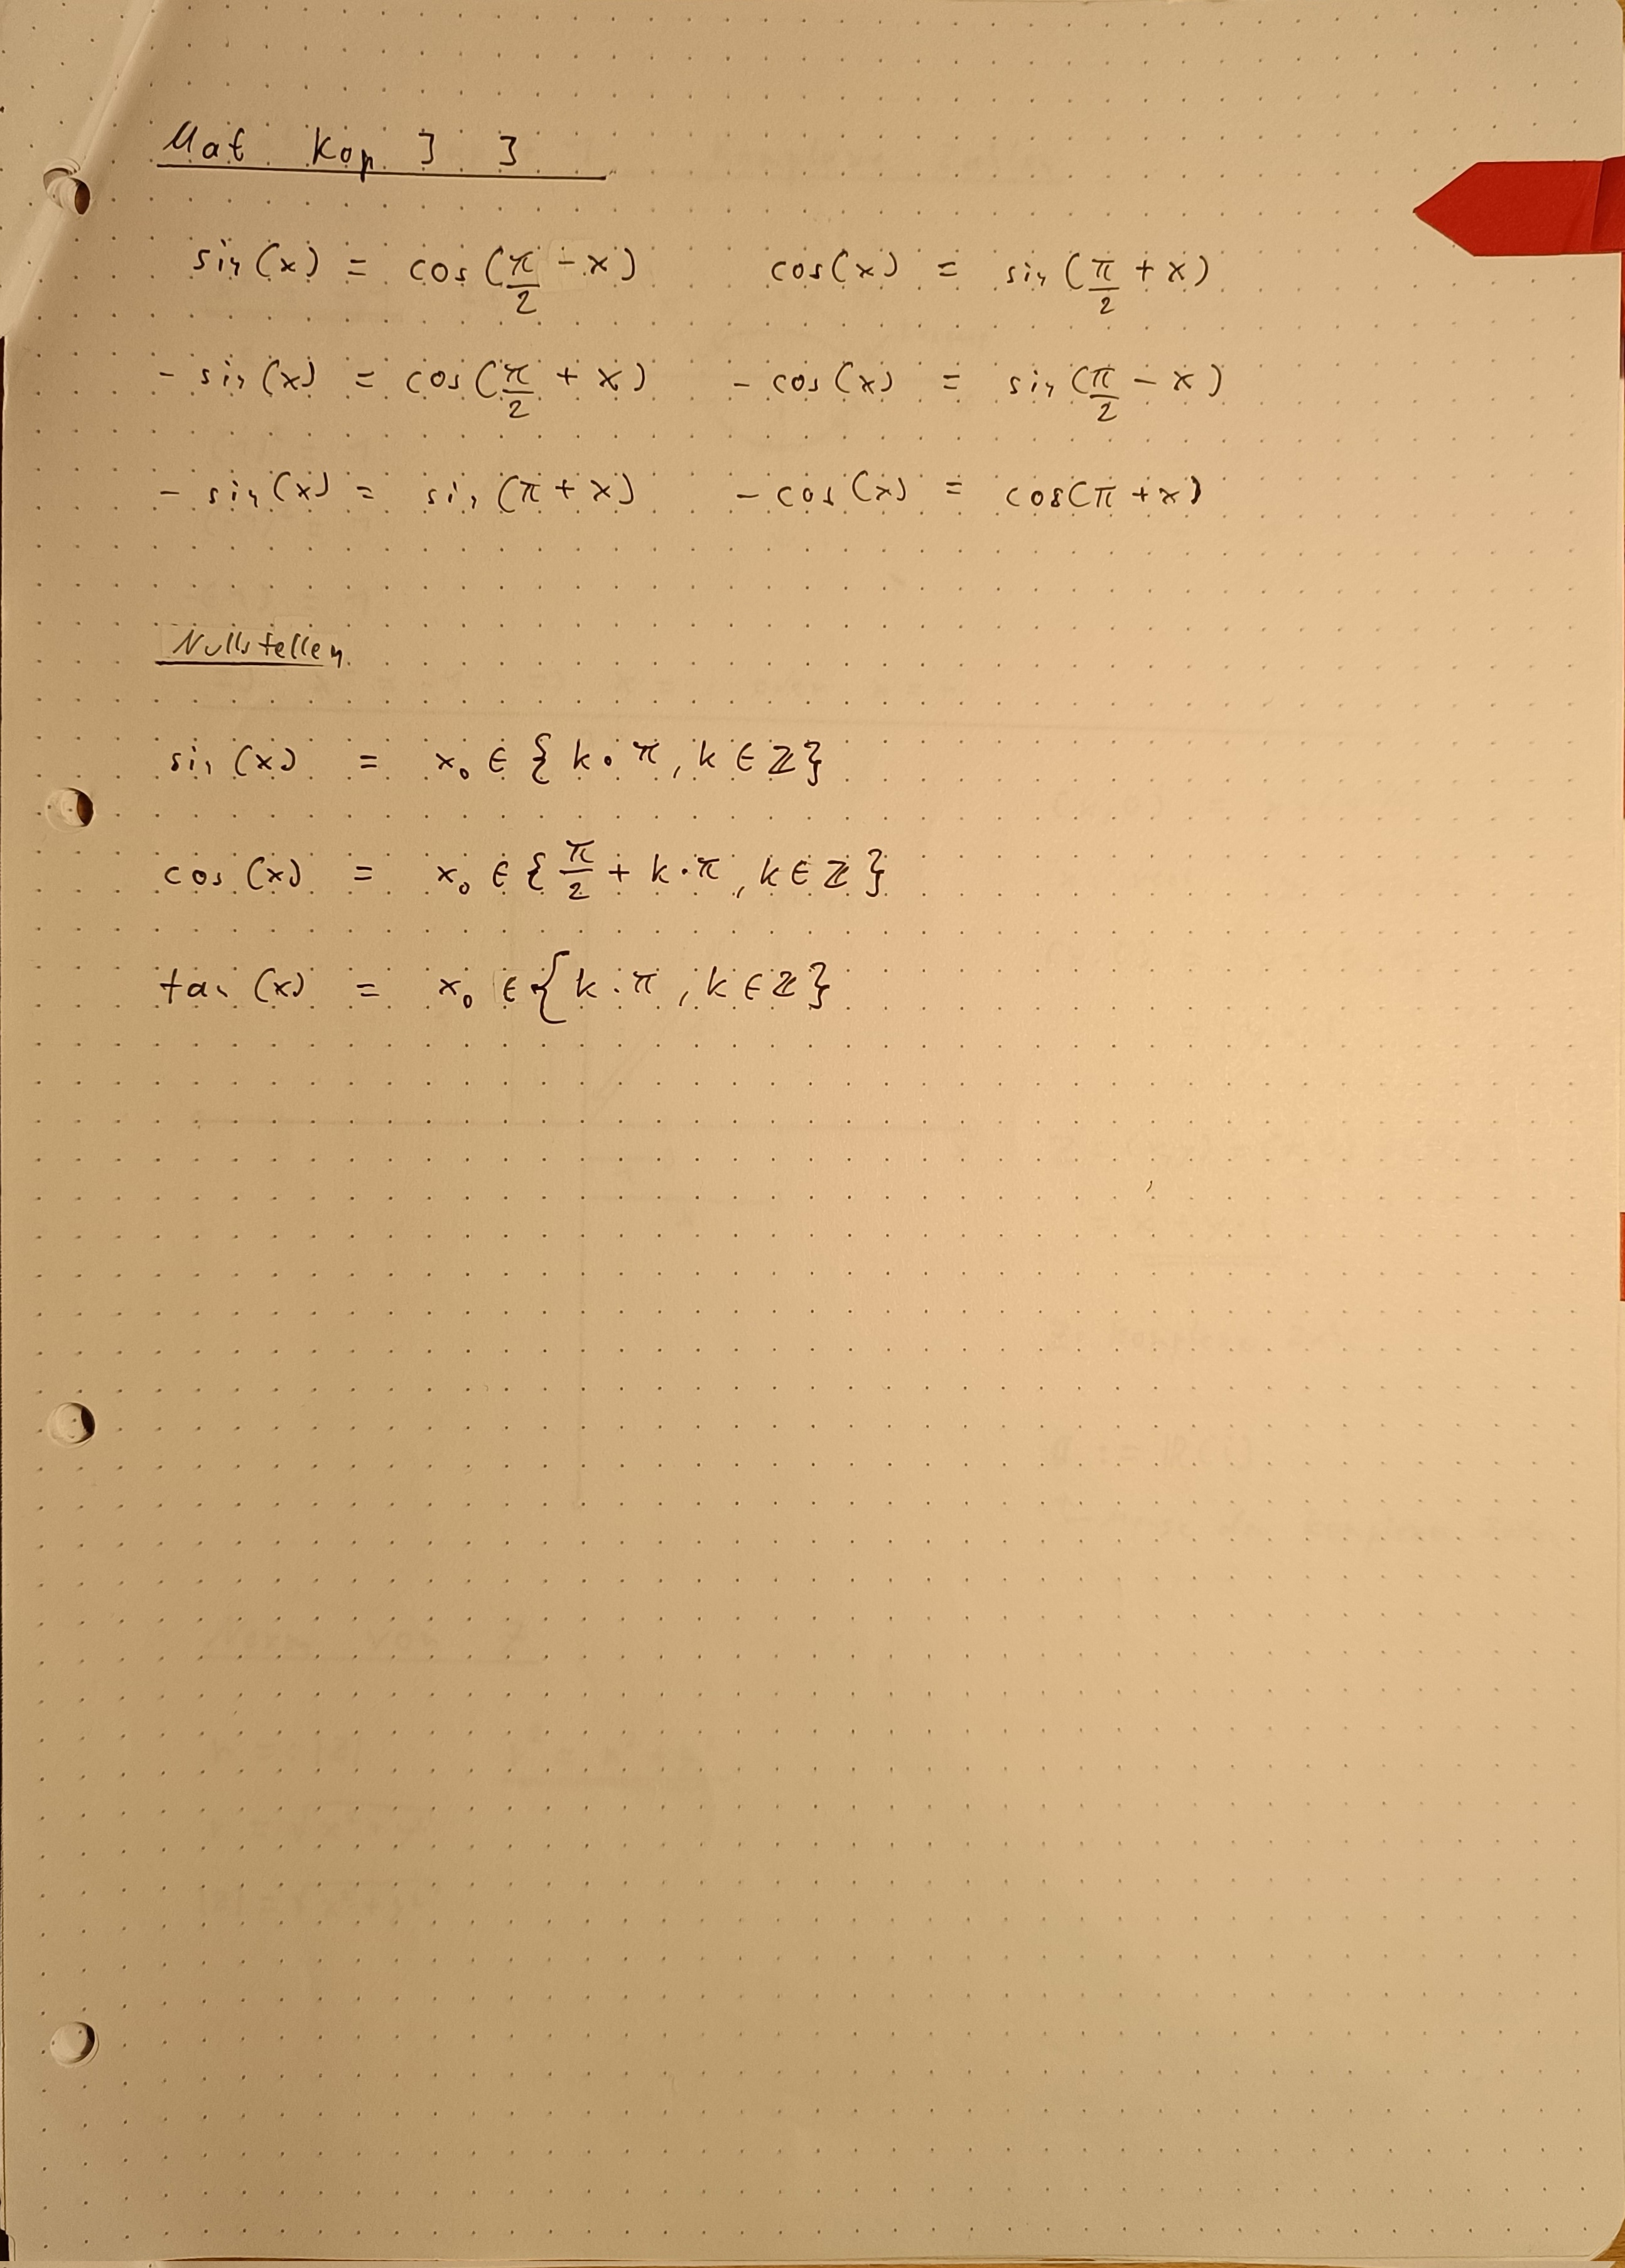 Mat Kap 3 3
sin(x) = cos(π/2 - x) cos(x) = sin(π/2 + x)
- sin(x) = cos(π/2 + x) - cos(x) = sin(π/2 - x)
- sin(x) = sin(π + x) - cos(x) = cos(π + x)
Nullstellen
sin(x) = x₀ ∈ {k · π, k ∈ ℤ}
cos(x) = x₀ ∈ {π/2 + k · π, k ∈ ℤ}
tan(x) = x₀ ∈ {k · π, k ∈ ℤ}